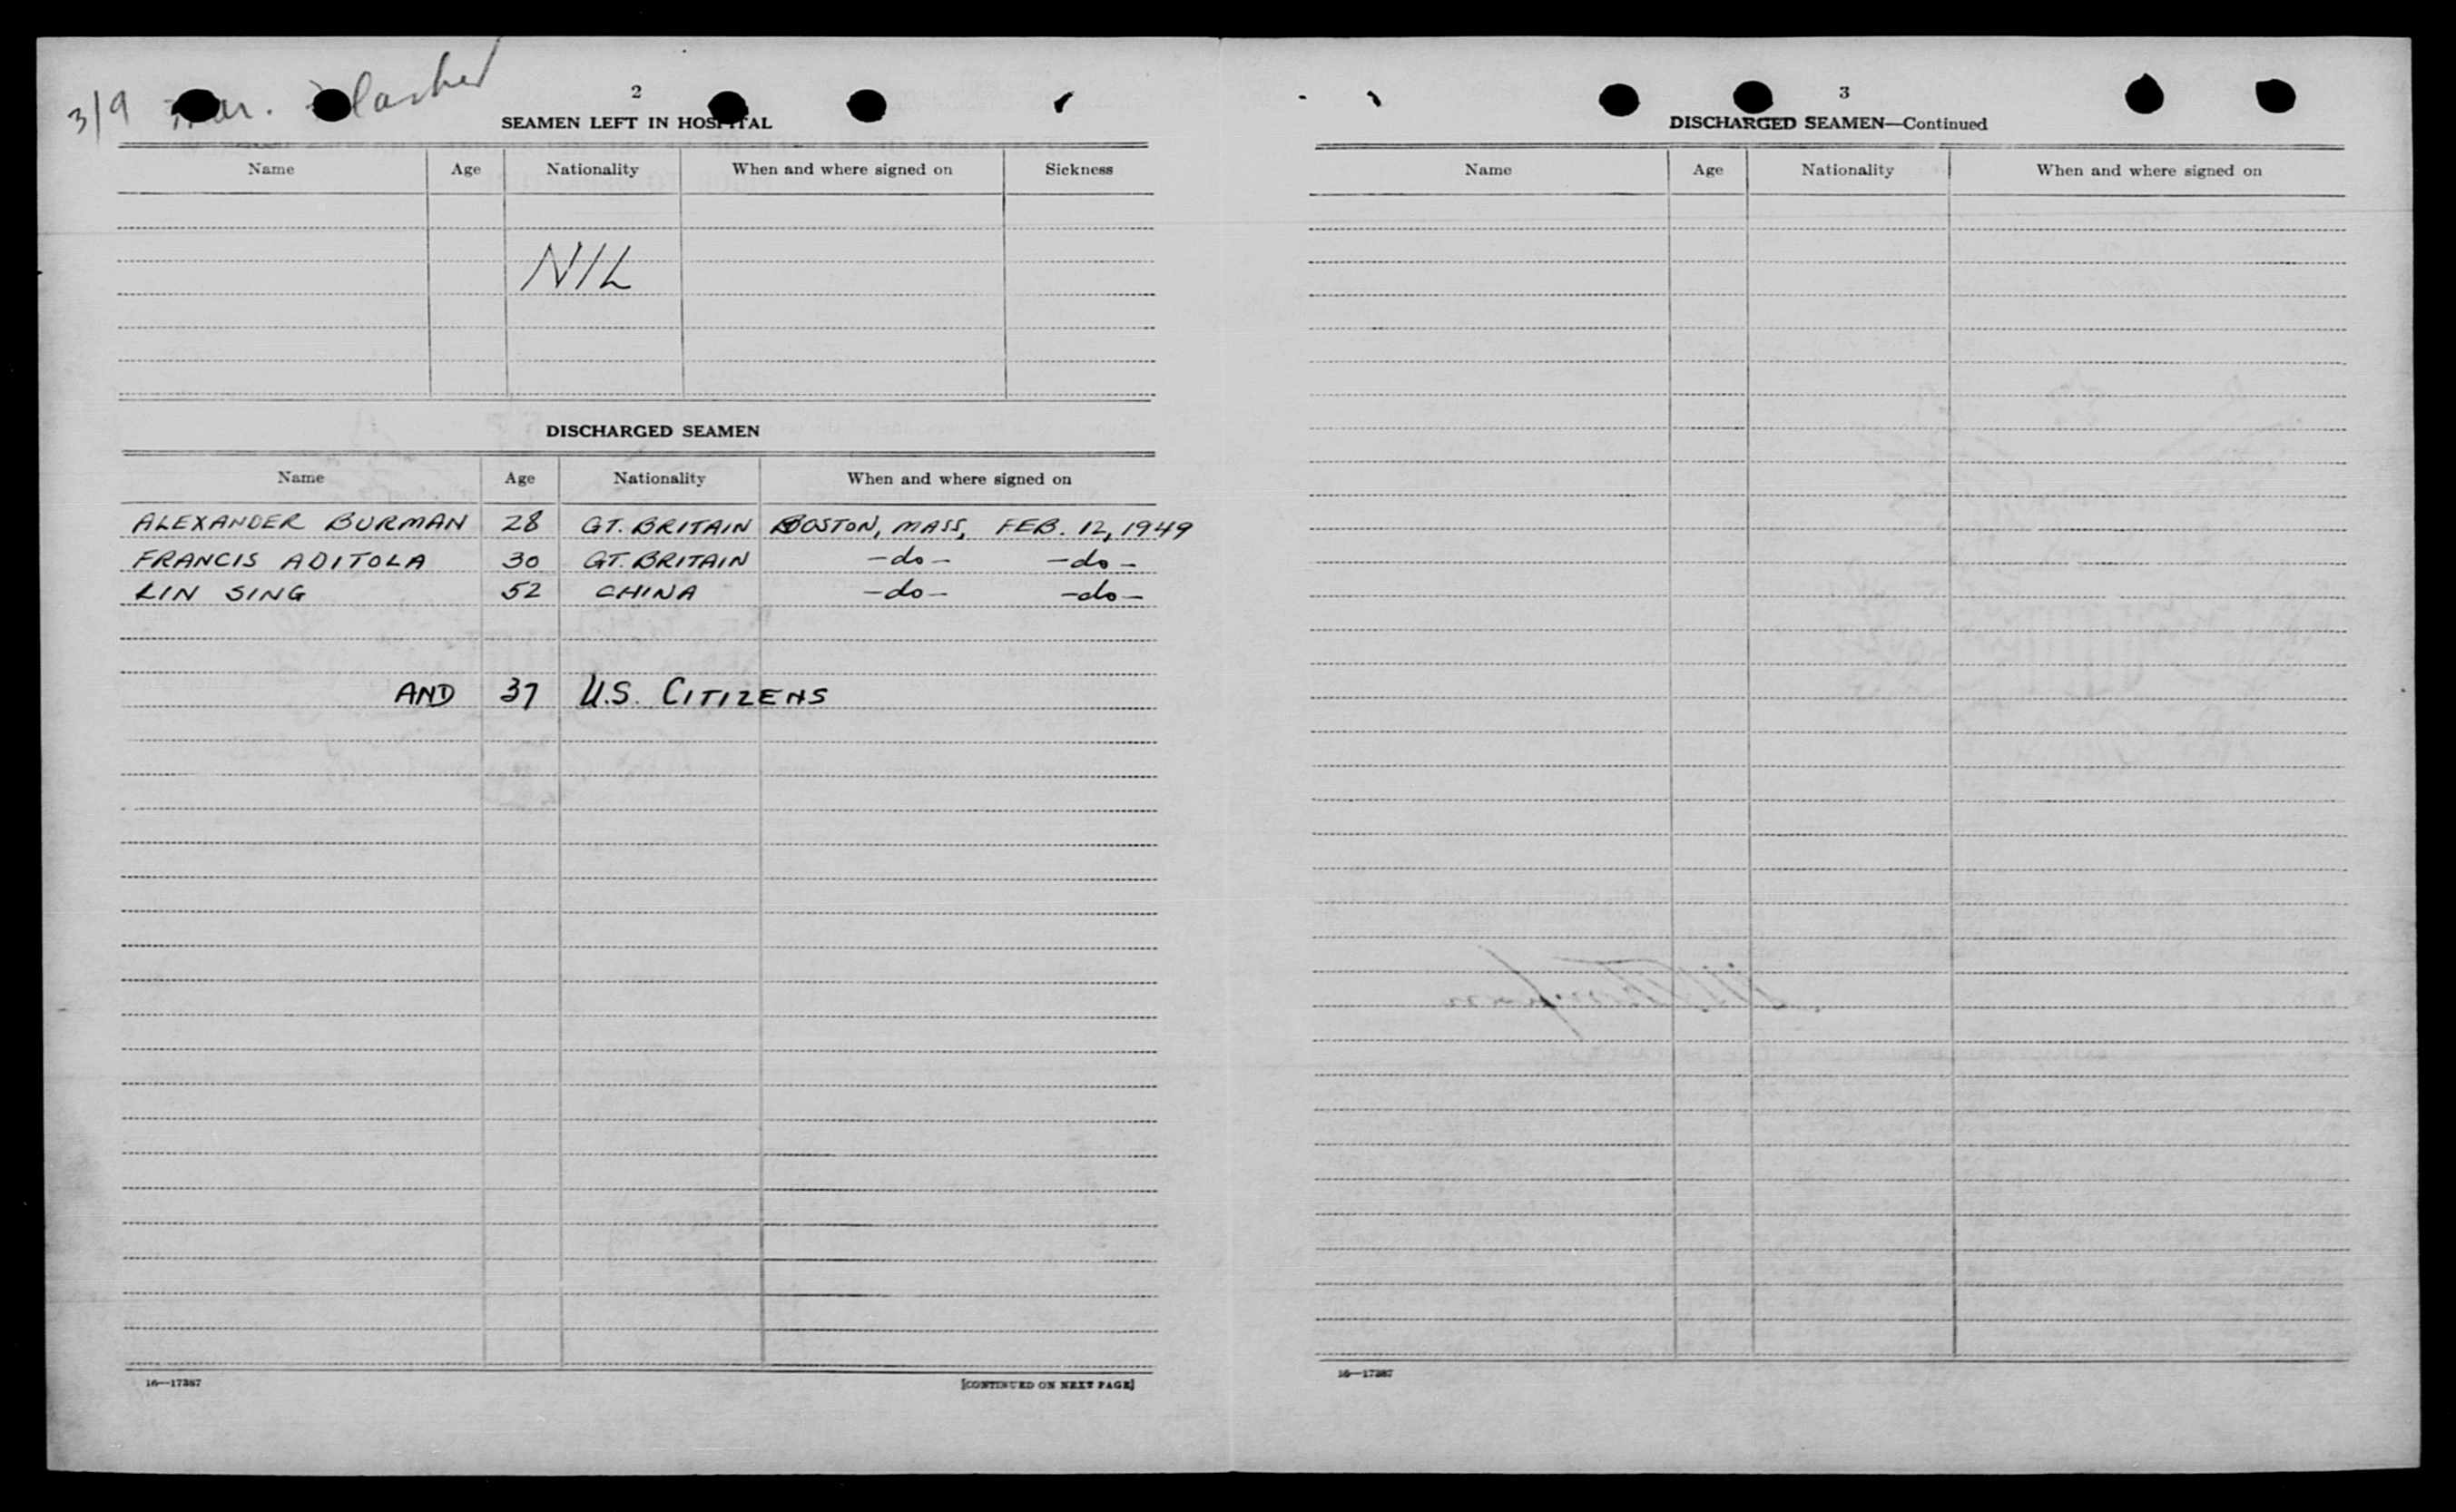 3/9
2
SEAMEN LEFT IN HOSPITAL
Name Age Nationality When and where signed on Sickness
NIL
DISCHARGED SEAMEN
Name Age Nationality When and where signed on
ALEXANDER BURMAN 28 GT. BRITAIN BOSTON, MASS, FEB. 12, 1949
FRANCIS ADITOLA 30 GT. BRITAIN -do- -do-
LIN SING 52 CHINA -do- -do-
AND 37 U.S. CITIZENS
16—17387 [CONTINUED ON NEXT PAGE]
3
DISCHARGED SEAMEN—Continued
Name Age Nationality When and where signed on
16—17387